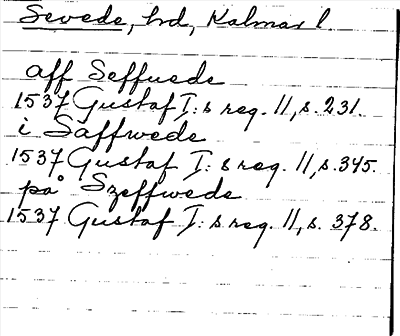 Sevede, hd, Kalmar l
aff Seffuede
1537 Gustaf I:s reg. 11, s. 231.
i Säffwede
1537 Gustaf I: s reg. 11, s. 345.
på Szeffwede
1537 Gustaf I: s reg. 11, s. 378.